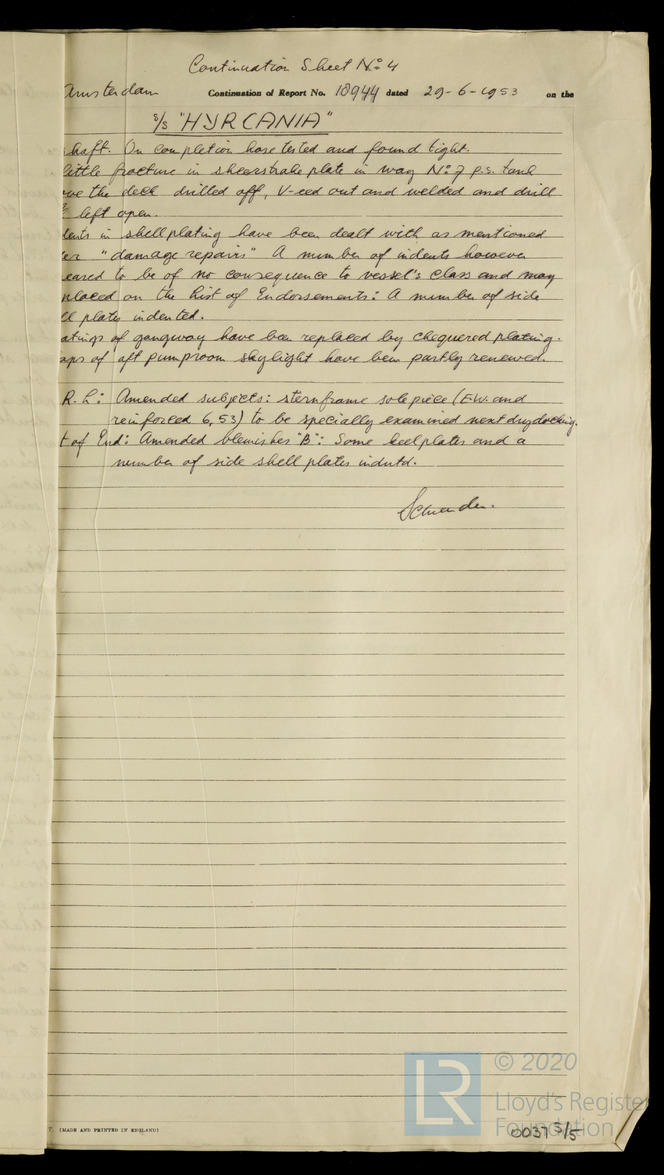 Continuation Sheet No: 4
Amsterdam Continuation of Report No. 18944 dated 29-6-1953 on the
s/s "HYRCANIA"
shaft. On completion hose tested and found tight.
little fracture in sheerstrake plate in way No: 7 p.s. tank
ove the deck drilled off, V-eed out and welded and drill
left open.
dents in shellplating have been dealt with as mentioned
er "damage repairs" A number of indents however
eared to be of no consequence to vessel's class and may
placed on the List of Endorsements: A number of side
ll plates indented.
atings of gangway have been replaced by chequered plating.
aps of aft pumproom skylight have been partly renewed.
R.L: Amended subjects: sternframe solepiece (E.W. and
reinforced 6,53) to be specially examined next drydocking.
t of End: Amended blemishes "B": Some keelplates and a
number of side shell plates indntd.
7. (MADE AND PRINTED IN ENGLAND)
LR
© 2020
Lloyd's Register
Foundation
0037 5/5